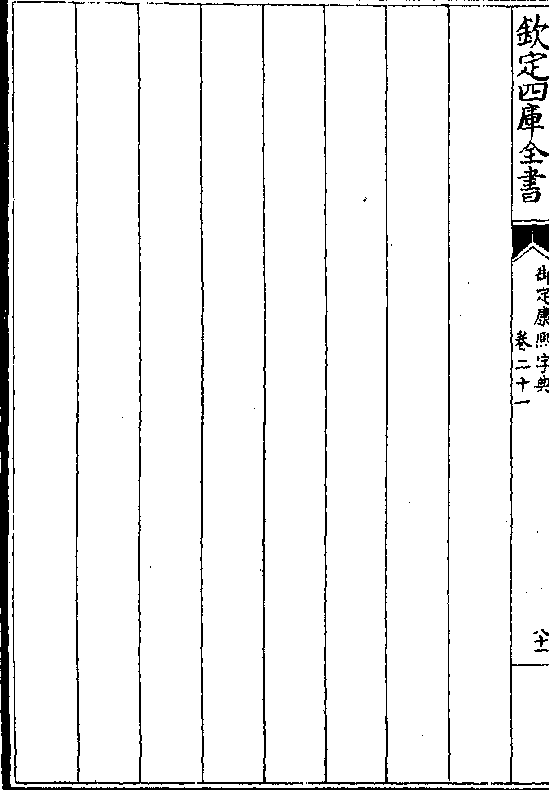 欽定四庫全書
御定康熙字典
卷二十一
八十一